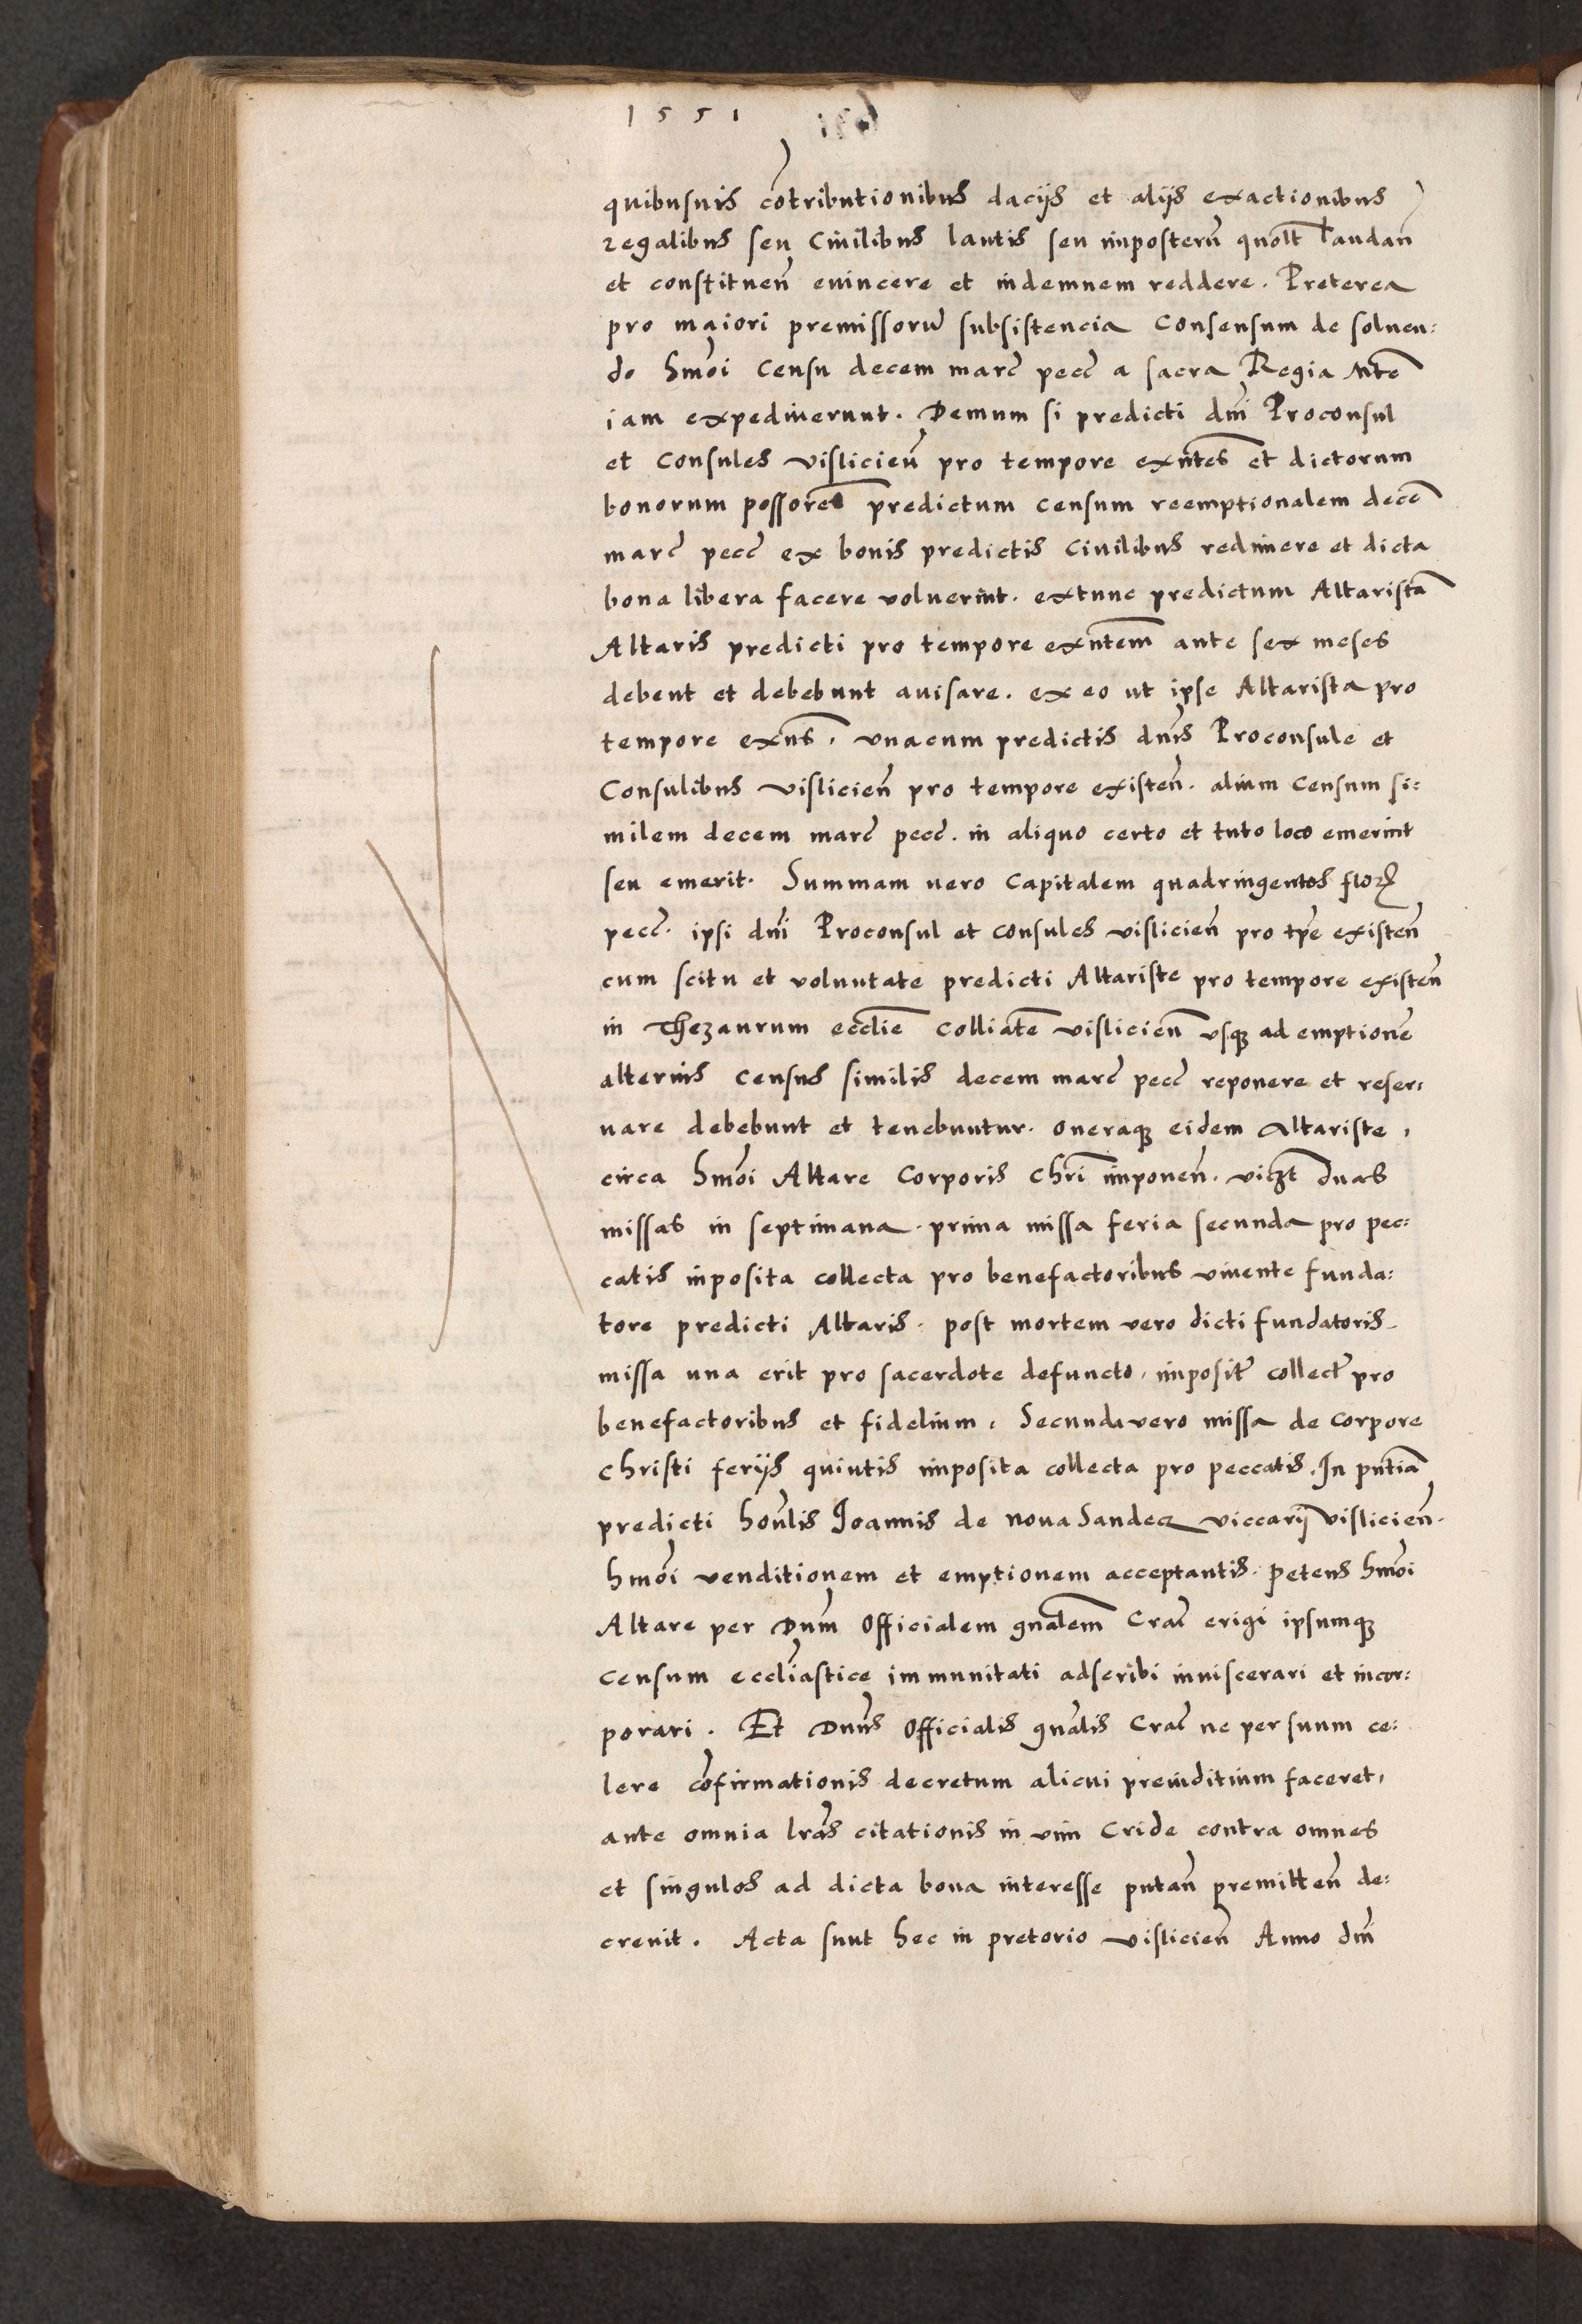 1551
quibusuis cõtributionibus dacijs et alijs exactionibus
regalibus seu Ciuilibus lautis seu imposterũ quolt̃ laudañ
et constitueñ euincere et indemnem reddere. Preterea
pro maiori premissorũ subsistencia Consensum de soluen:
do hmõi Censu decem marc̃ pecc̃ a sacra Regia Mte᷉
iam expediuerunt. Demum si predicti dñi Proconsul
et Consules vislicieñ pro tempore exñtes et dictorum
bonorum possores̃ predictum Censum reemptionalem decẽ
marc̃ pecc̃ ex bonis predictis Ciuilibus redimere et dicta
bona libera facere voluerint. extunc predictum Altaristã
Altaris predicti pro tempore exñtem ante sex meses
debent et debebunt auisare. ex eo ut ipse Altarista pro
tempore exñs, vnacum predictis dñis Proconsule et
Consulibus vislicieñ pro tempore existeñ. alium Censum si:
milem decem marc̃ pecc̃. in aliquo certo et tuto loco emerint
seu emerit. Summam uero Capitalem quadringentos flor̃
pecc̃. ipsi dñi Proconsul et consules vislicieñ pro tp̃e existeñ
cum scitu et voluntate predicti Altariste pro tempore existeñ
in Thezaurum eccliẽ Colliatẽ vislicieñ vsq̃ ad emptionẽ
alterius Census similis decem marc̃ pecc̃ reponere et reser:
uare debebunt et tenebuntur. oneraq̃ eidem Altariste,
circa hmõi Altare Corporis Chr̃i imponeñ. vicz̃t duas
missas in septimana. prima missa feria secunda pro pec:
catis inposita collecta pro benefactoribus viuente funda:
tore predicti Altaris. post mortem vero dicti fundatoris
missa una erit pro sacerdote defuncto, imposit̃ collect̃ pro
benefactoribus et fidelium. Secunda vero missa de Corpore
christi ferijs quintis imposita collecta pro peccatis. In pñtiã
predicti hoñlis Joannis de noua Sandecz viccarij vislicieñ.
hmõi venditionem et emptionem acceptantis. petens hmõi
Altare per Dñm Officialem gñalem Crac̃ erigi ipsumq̃
censum eccliãstice immunitati adscribi inuiscerari et incor:
porari. Et Dñus Officialis gñalis Crac̃ ne per suum ce:
lere cõfirmationis decretum alicui preiuditium faceret,
ante omnia lrãs citationis in vim Cride contra omnes
et singulos ad dicta bona interesse putañ premitteñ de:
creuit. Acta sunt hec in pretorio vislicieñ Anno dñi